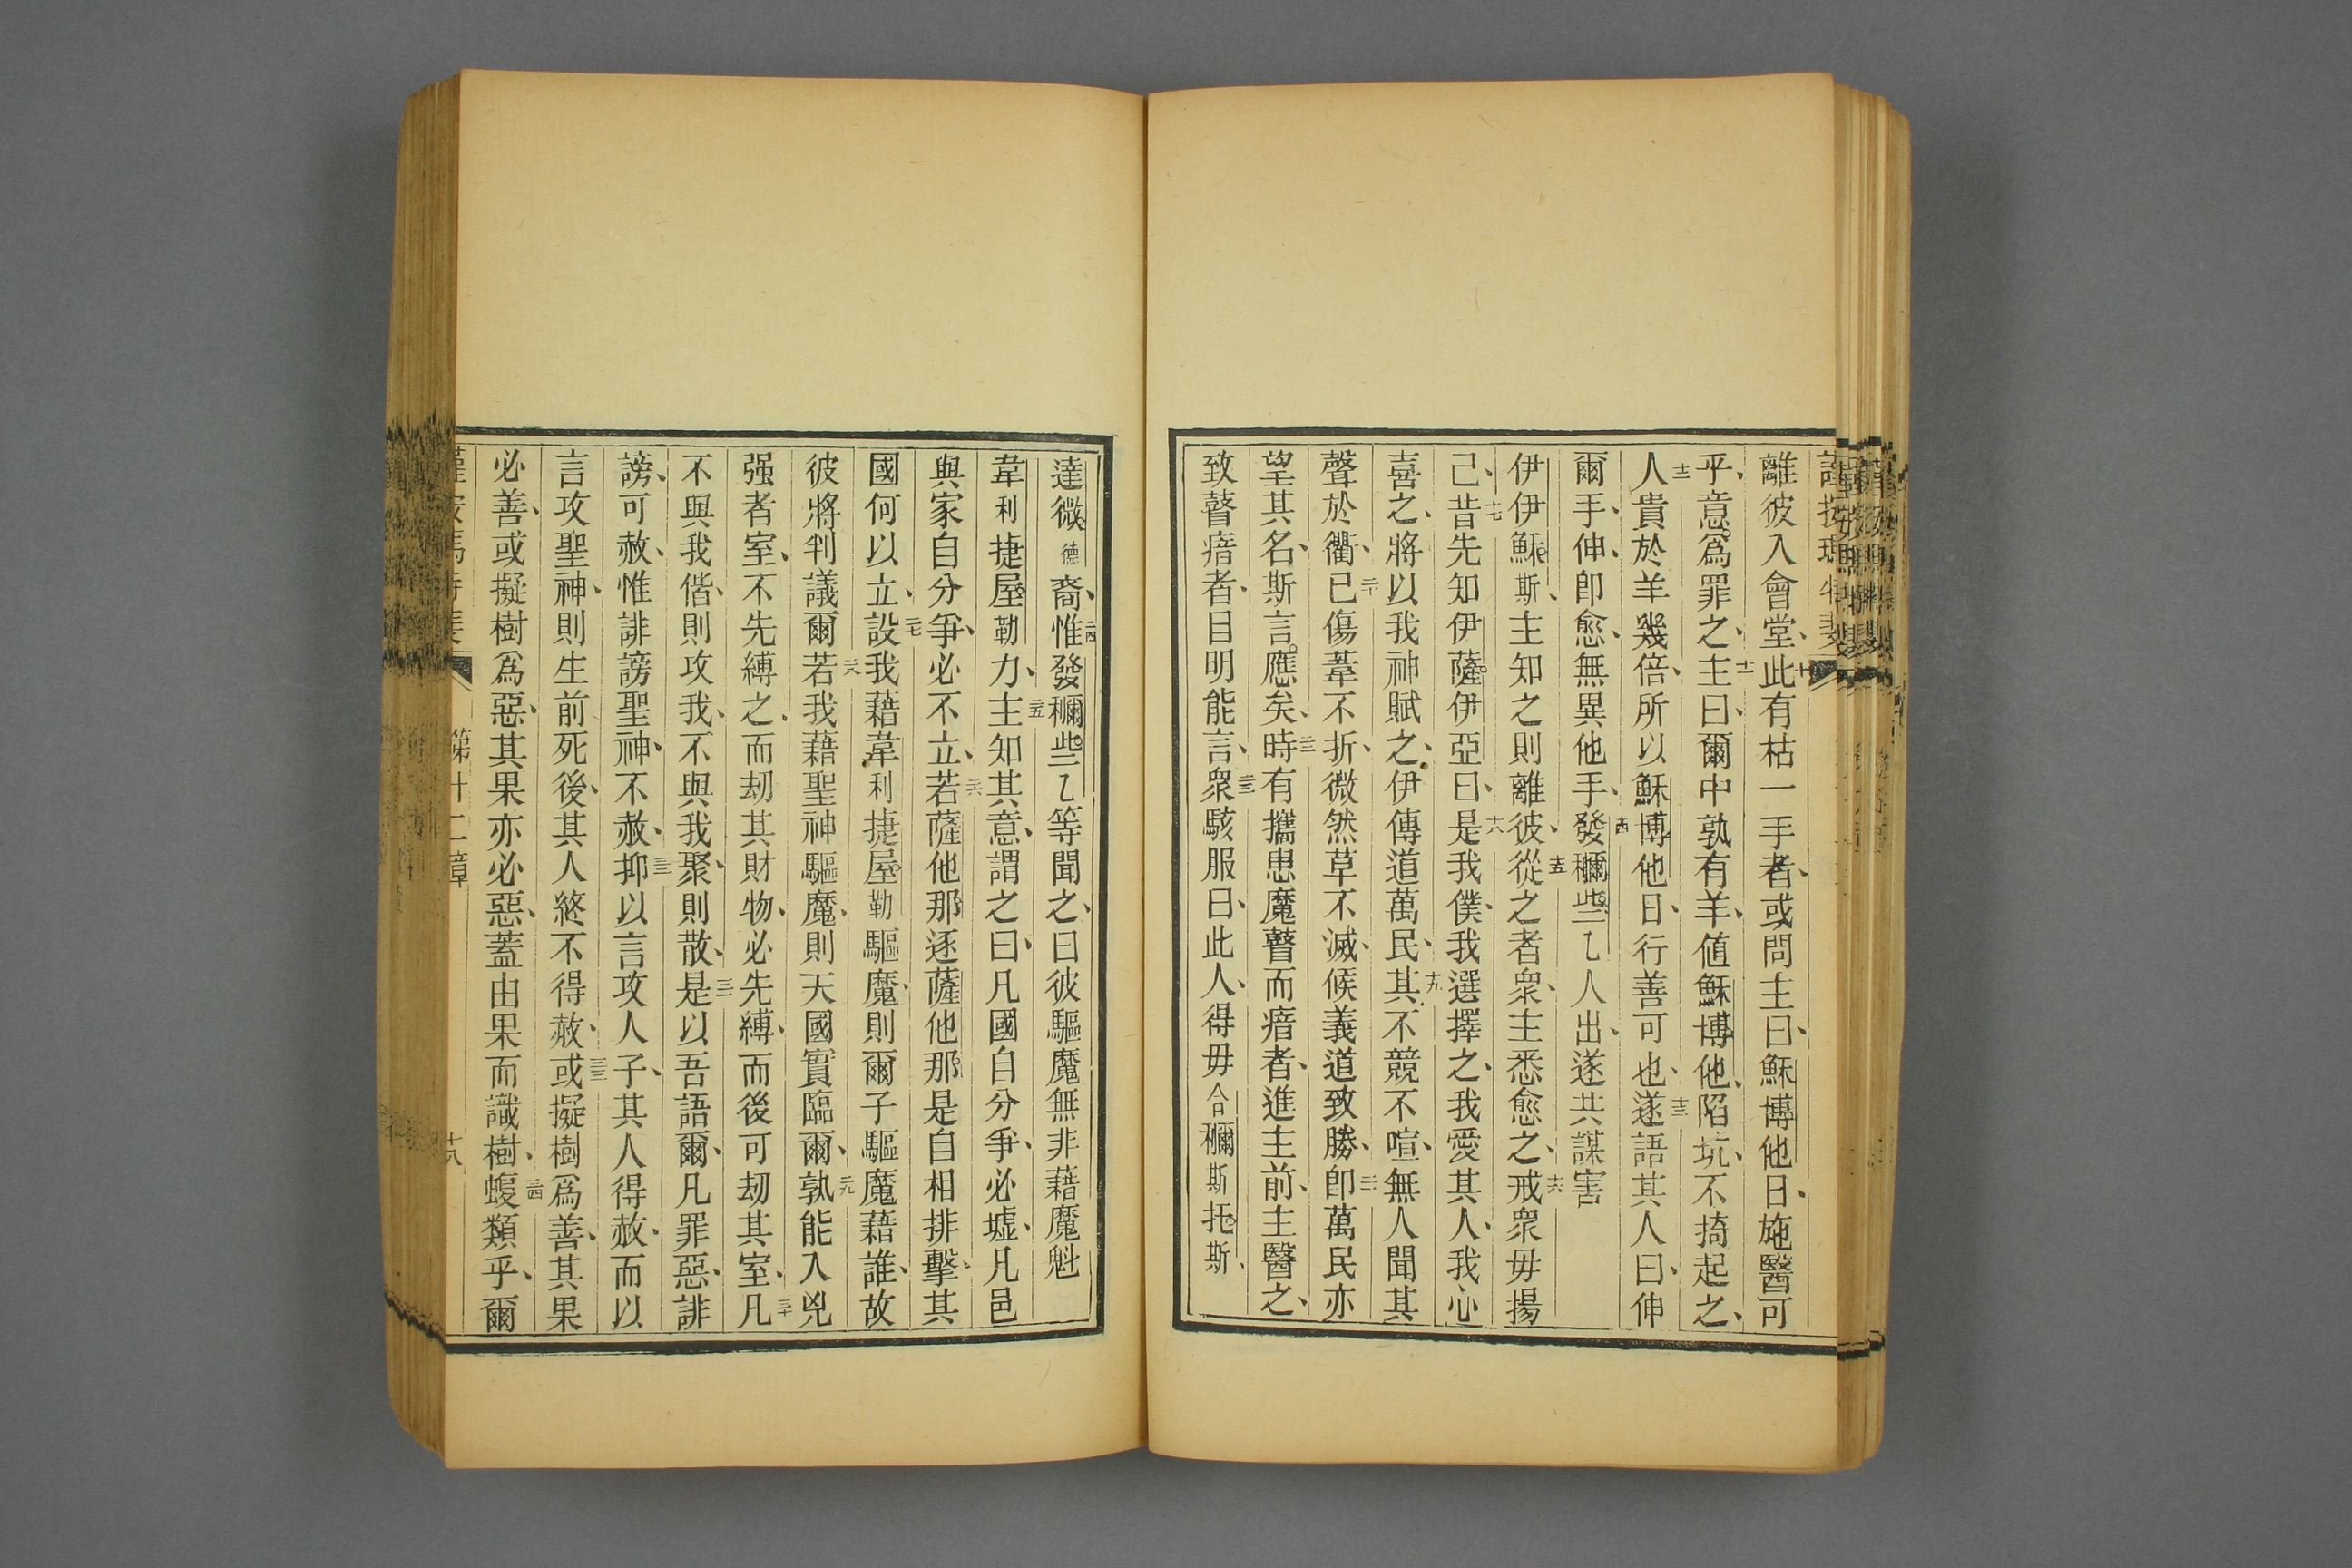 離彼入會堂、十此有枯一手者、或問主曰、穌博他日、施醫可
乎、意爲罪之、十一主曰、爾中孰有羊、值穌博他、陷坑、不掎起之、
十二人貴於羊幾倍、所以穌博他日、行善可也、十三遂語其人曰、伸
爾手、伸、卽愈、無異他手、十四發穪些乙人出、遂共謀害
伊伊穌斯、主知之則離彼、十五從之者衆、主悉愈之、十六戒衆毋揚
己、十七昔先知伊薩伊亞曰、十八是我僕、我選擇之、我愛其人、我心
喜之、將以我神賦之、伊傳道萬民、十九其不競不喧、無人聞其
聲於衢、二十已傷葦不折、微然草不滅、候義道致勝、二一卽萬民亦
望其名、斯言應矣、二二時有攜患魔瞽而瘖者、進主前、主醫之、
致瞽瘖者、目明能言、二三衆駭服曰、此人、得毋合穪斯托斯、
達微德裔、二四惟發穪些乙等聞之、曰彼驅魔無非藉魔魁
韋利捷屋勒力、二五主知其意、謂之曰、凡國自分爭、必墟、凡邑
與家自分爭、必不立、二六若薩他那逐薩他那、是自相排擊、其
國何以立、二七設我藉韋利捷屋勒驅魔、則爾子驅魔藉誰、故
彼將判議爾、二八若我藉聖神驅魔、則天國實臨爾、二九孰能入兇
强者室、不先縛之、而刼其財物、必先縛、而後可刼其室、三十凡
不與我偕、則攻我、不與我聚、則散、三一是以吾語爾、凡罪惡、誹
謗、可赦、惟誹謗聖神、不赦、三二抑以言攻人子、其人得赦、而以
言攻聖神、則生前死後、其人終不得赦、三三或擬樹爲善、其果
必善、或擬樹爲惡、其果亦必惡、蓋由果而識樹、三四蝮類乎、爾
第十二章 十八